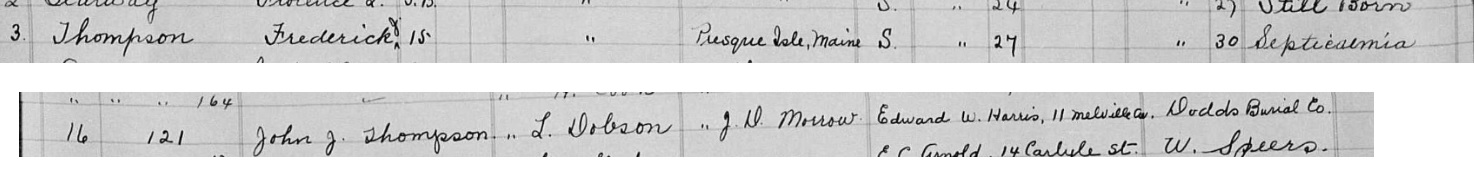 24 " 27 Still Born
3. Thompson Frederick 15 " Presque Isle, Maine S. " 27 " 30 Septicaemia
" " " 164
16 121 John J. Thompson " L. Dobson " J. D. Morrow. Edward W. Harris, 11 Melville av. Dodds Burial Co.
E C Arnold, 14 Carlyle st. W. Speers.